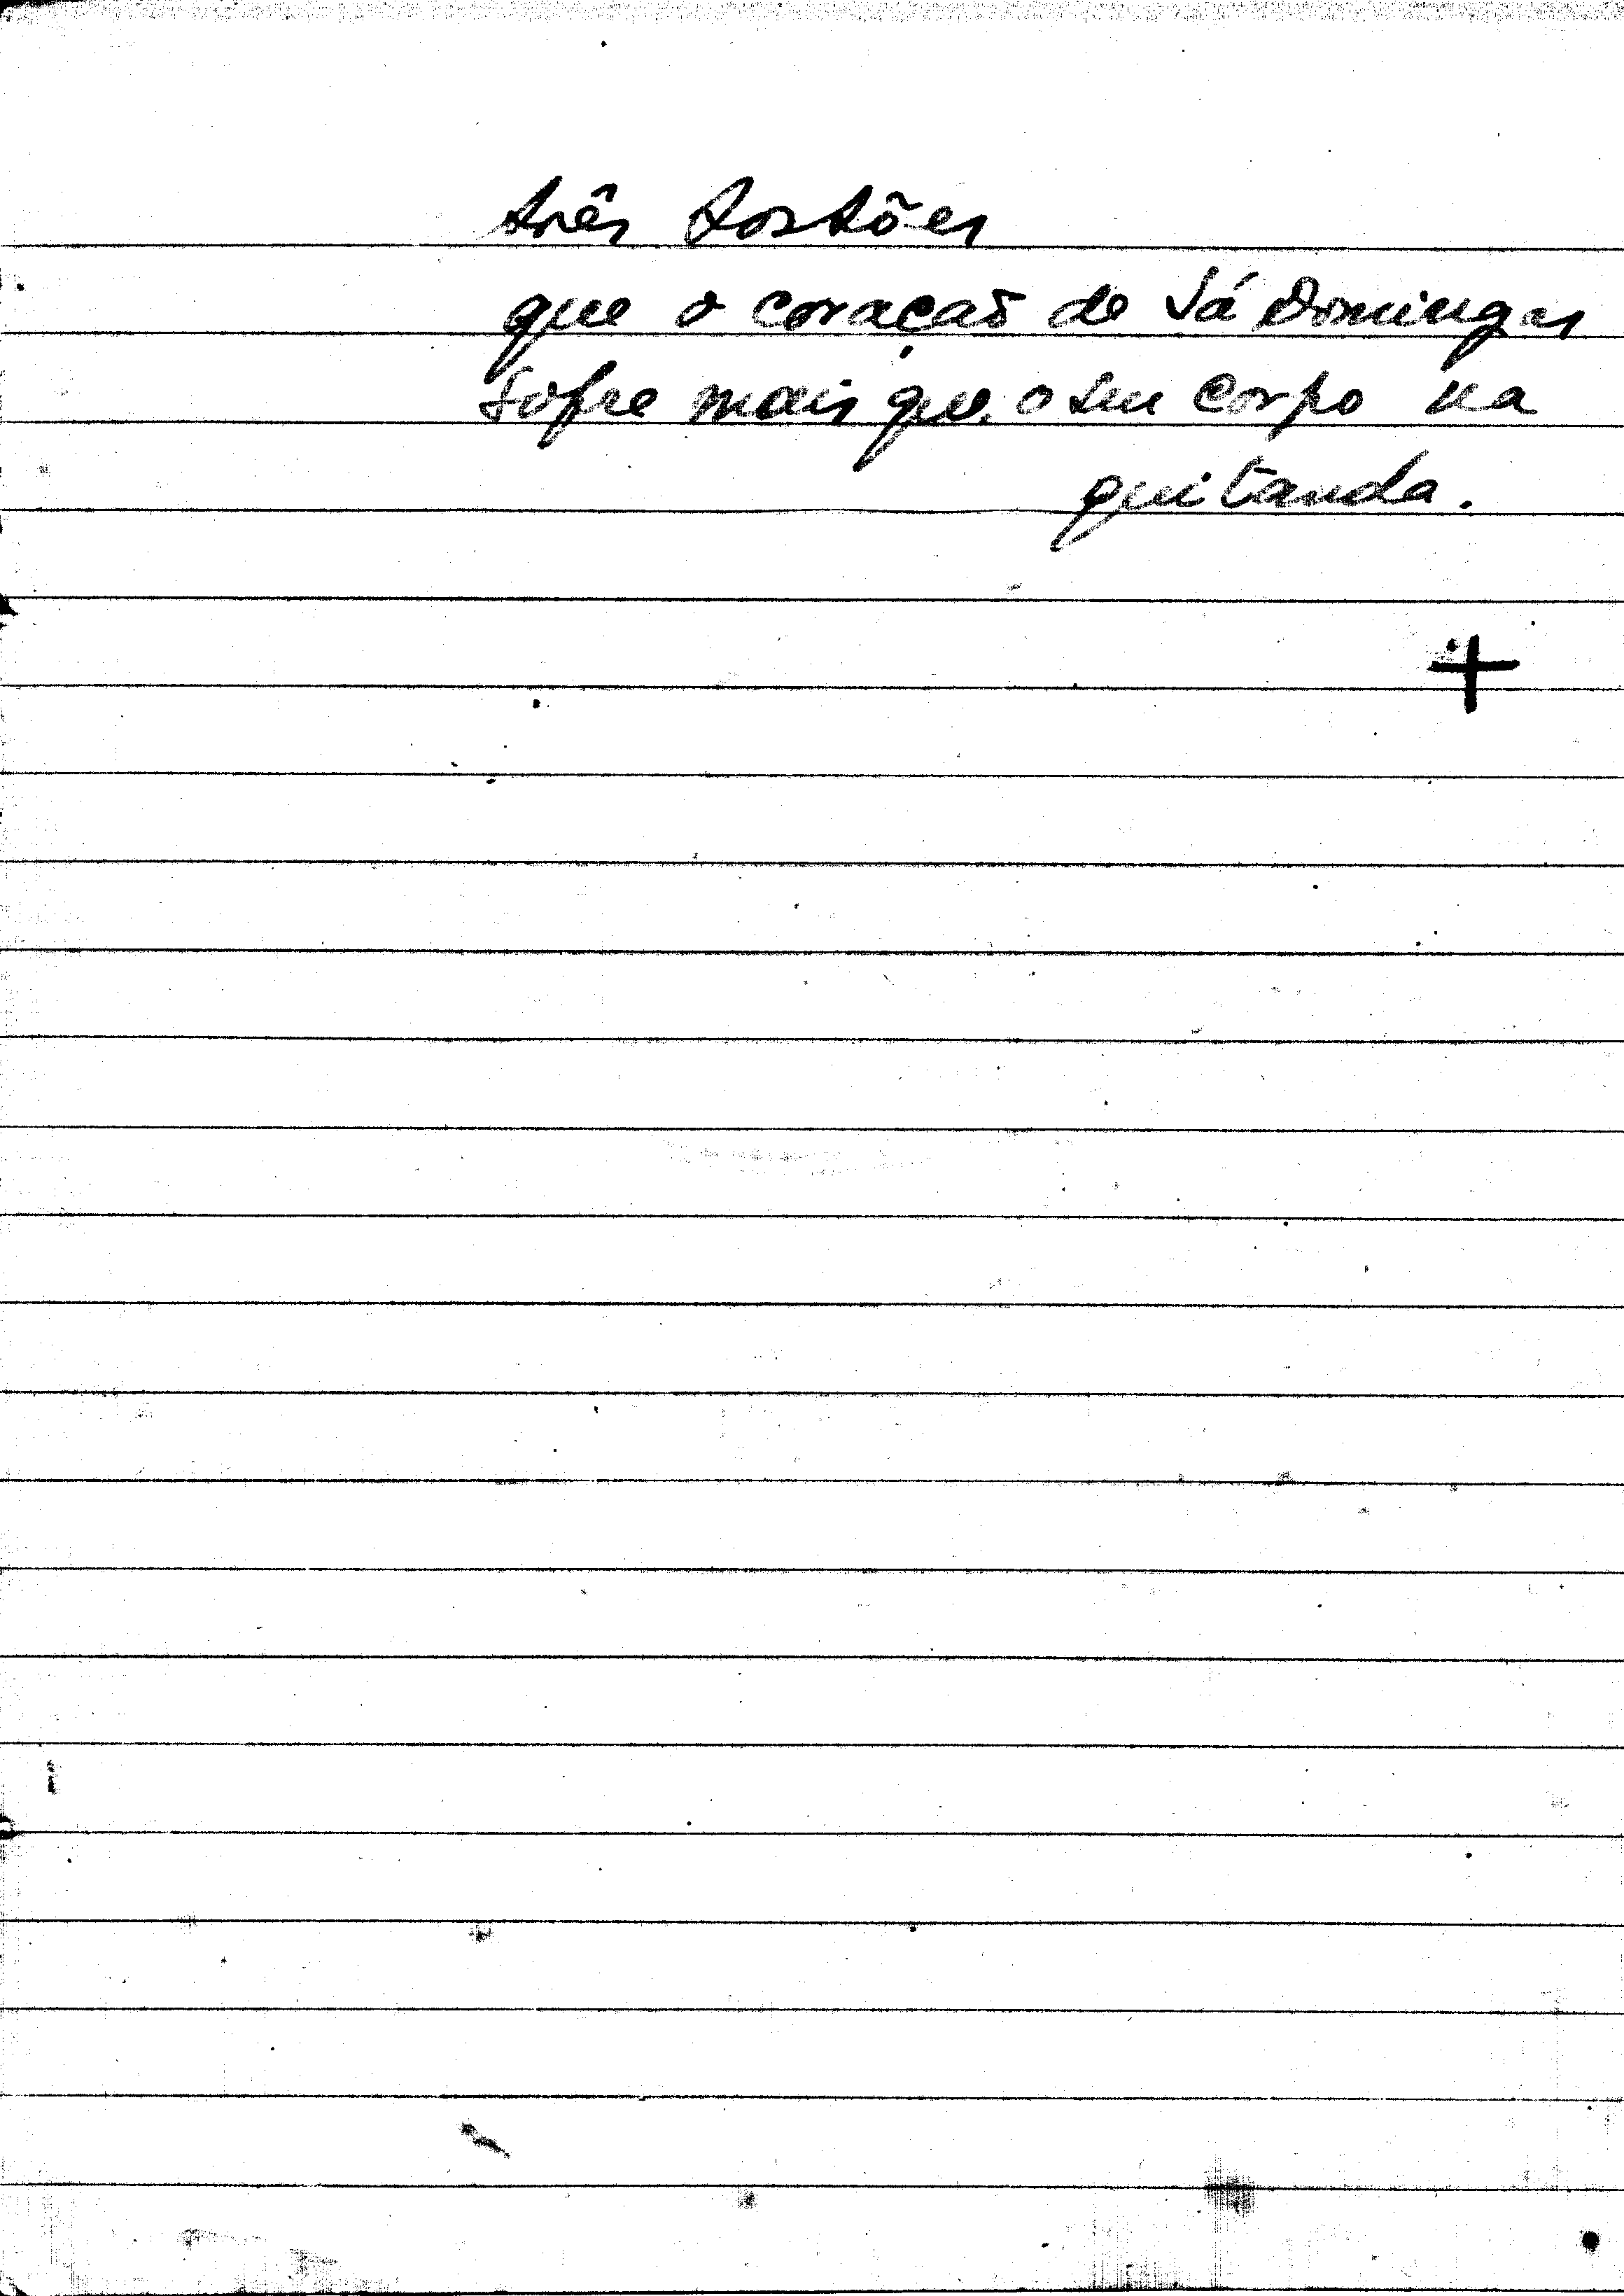 três tostões
que o coração de Sá Domingas
sofre mais que o seu corpo na
quitanda.
+